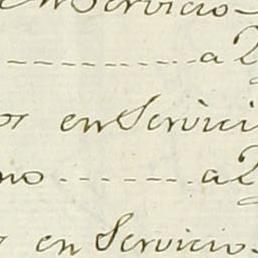 en Servicio
a 2
or en Servici
no a 2
en Servicio